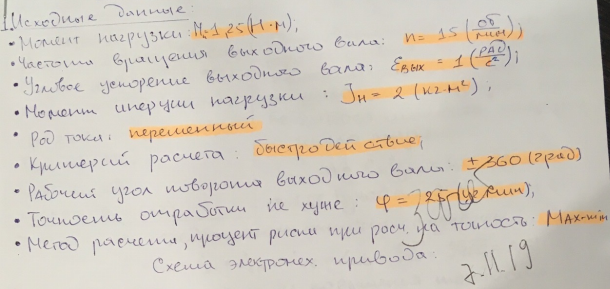 1. Исходные данные:
• Момент нагрузки: M=1,25 (Н·м);
• Частота вращения выходного вала: n = 15 (об/мин);
• Угловое ускорение выходного вала: εвых = 1 (рад/с²);
• Момент инерции нагрузки: Jн = 2 (кг·м²),
• Род тока: переменный
• Критерий расчета: быстродействие;
• Рабочий угол поворота выходного вала: ±360 (град)
• Точность отработки не хуже: φ = 25 (угл мин),
• Метод расчета, процент риски при расч. на точность: MAX-min
Схема электромех. привода:
7.11.19